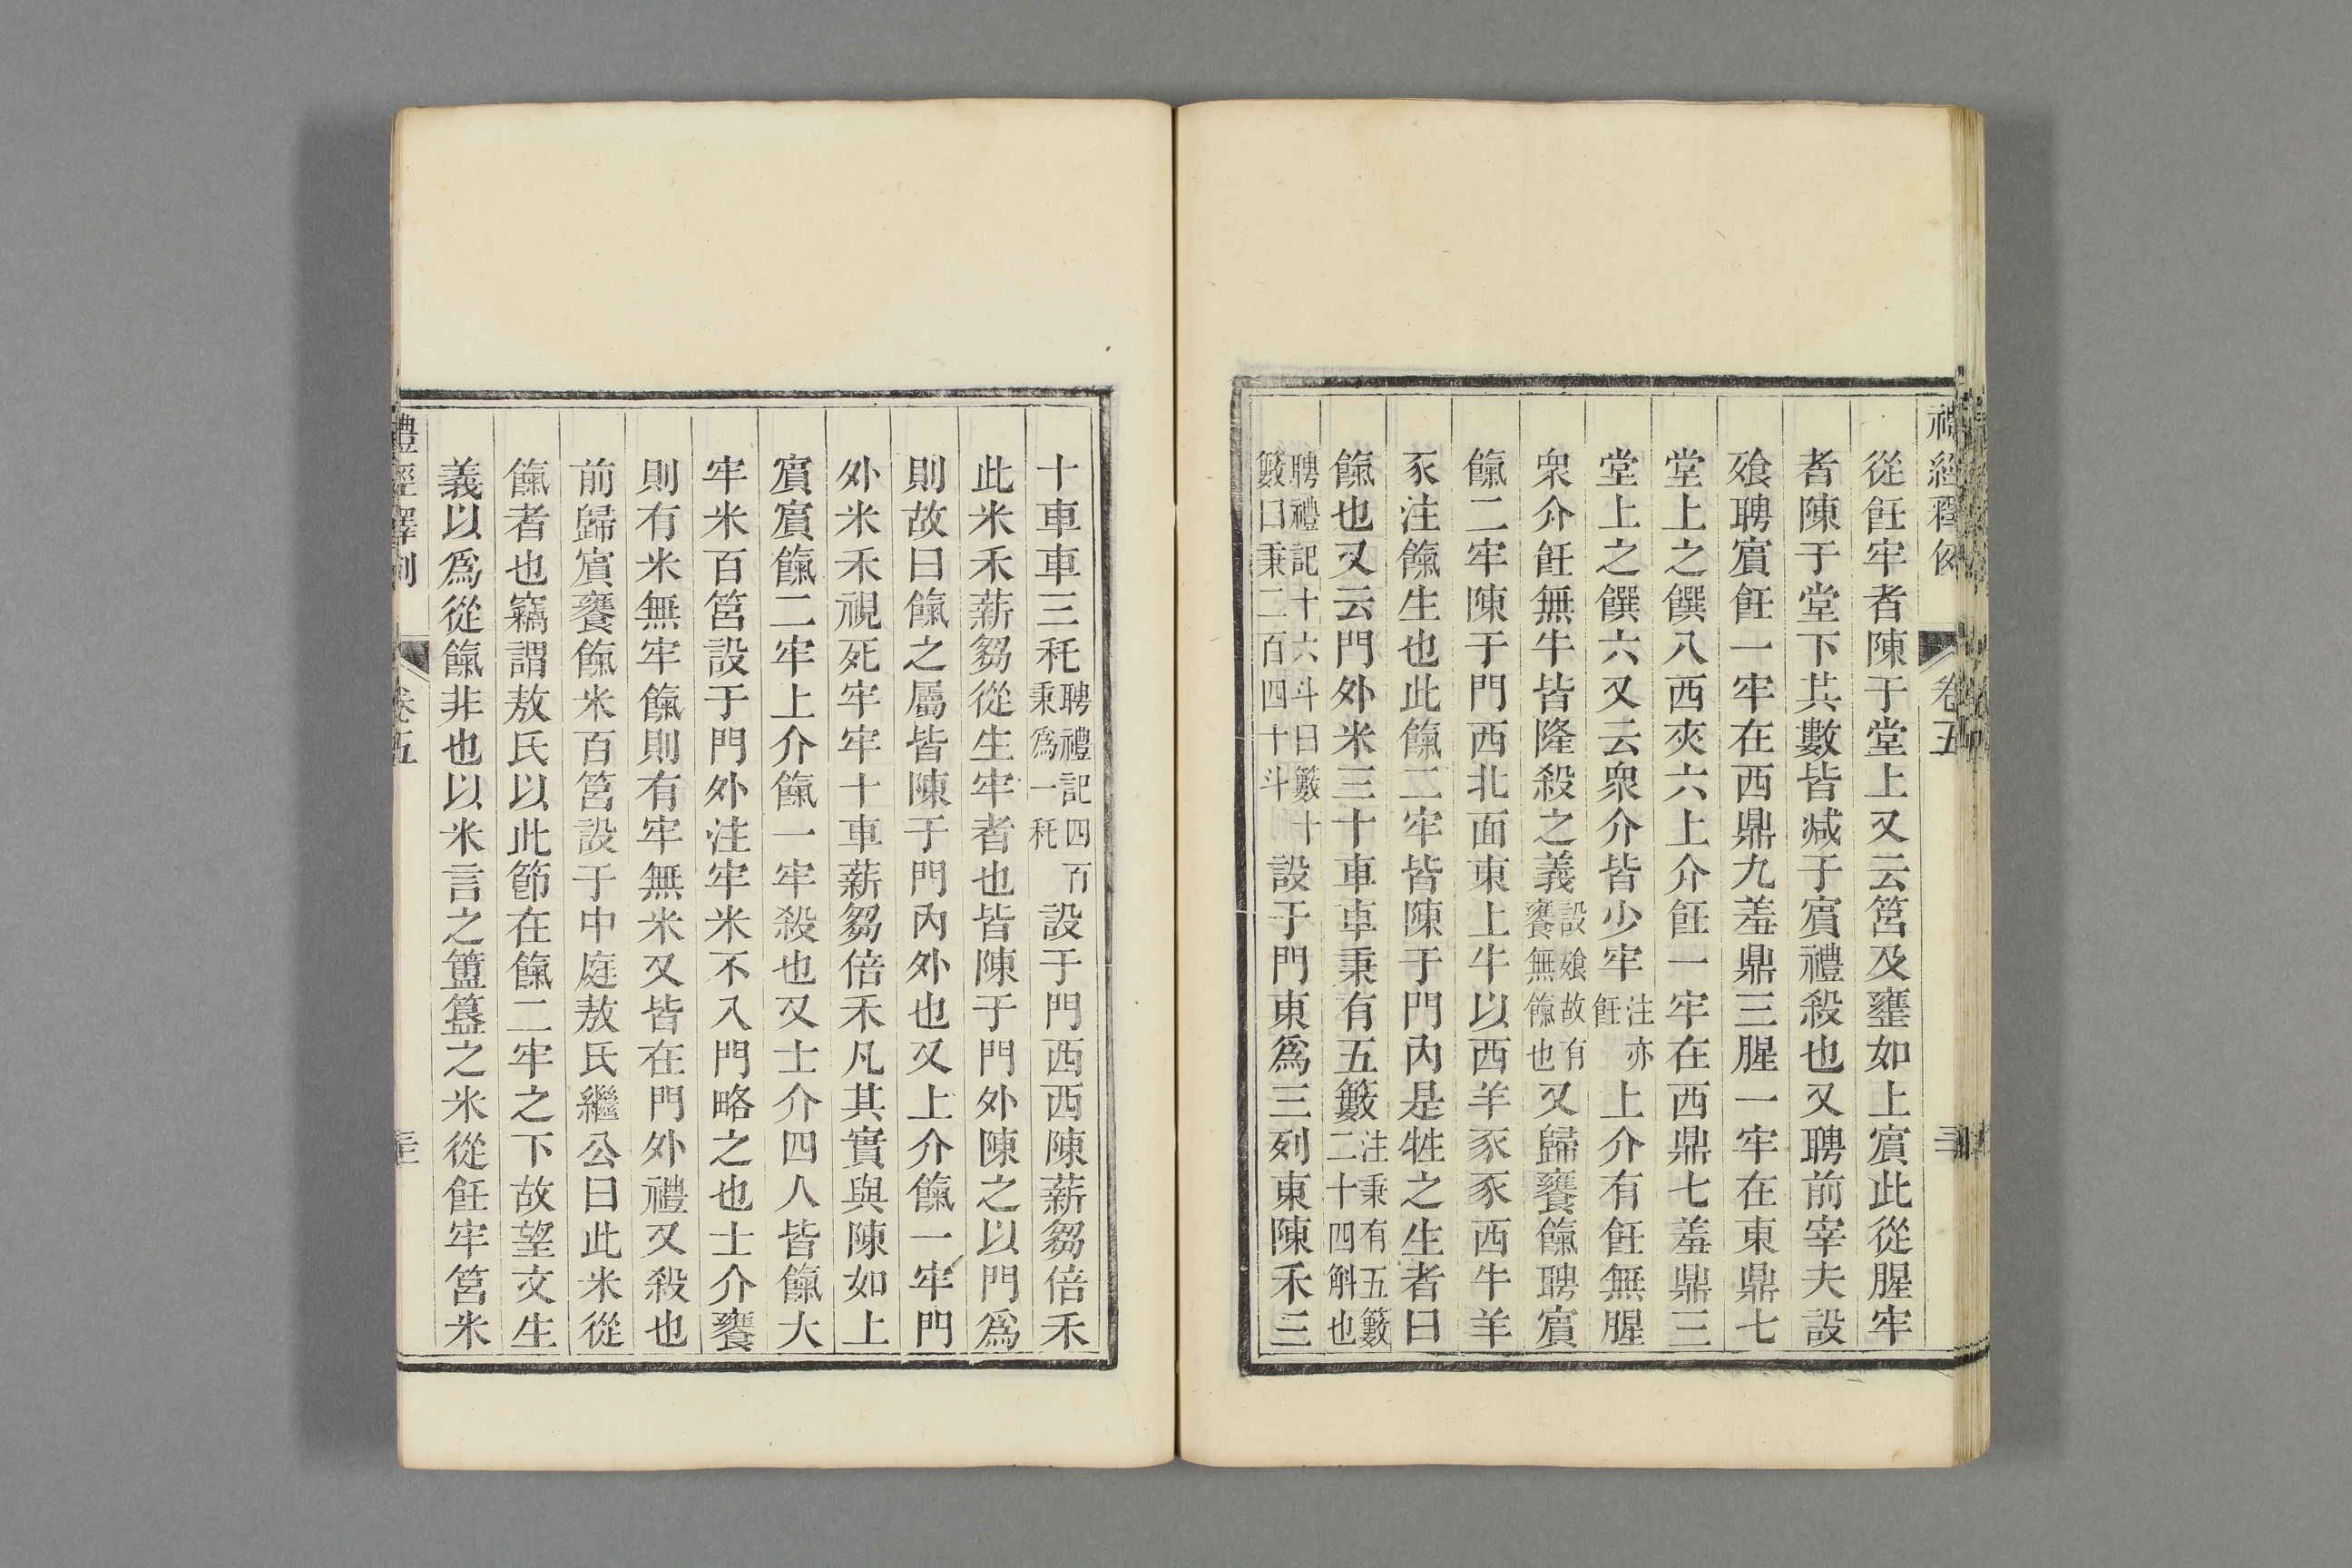 從飪牢者陳于堂上又云筥及罋如上賓此從腥牢
者陳于堂下其數皆减于賓禮殺也又聘前宰夫設
飧聘賓飪一牢在西鼎九羞鼎三腥一牢在東鼎七
堂上之饌八西夾六上介飪一牢在西鼎七羞鼎三
堂上之饌六又云衆介皆少牢注亦飪上介有飪無腥
衆介飪無牛皆隆殺之義設飧故有饔無餼也又歸饔餼聘賓
餼二牢陳于門西北面東上牛以西羊豕豕西牛羊
豕注餼生也此餼二牢皆陳于門內是牲之生者曰
餼也又云門外米三十車車秉有五籔注秉有五籔二十四斛也
聘禮記十六斗曰籔十籔曰秉二百四十斗設于門東爲三列東陳禾三
十車車三秅聘禮記四百秉爲一秅設于門西西陳薪芻倍禾
此米禾薪芻從生牢者也皆陳于門外陳之以門爲
則故曰餼之屬皆陳于門內外也又上介餼一牢門
外米禾視死牢牢十車薪芻倍禾凡其實與陳如上
賓賓餼二牢上介餼一牢殺也又士介四人皆餼大
牢米百筥設于門外注牢米不入門略之也士介饔
則有米無牢餼則有牢無米又皆在門外禮又殺也
前歸賓饔餼米百筥設于中庭敖氏繼公曰此米從
餼者也竊謂敖氏以此節在餼二牢之下故望文生
義以爲從餼非也以米言之簠簋之米從飪牢筥米
禮經釋例
卷五